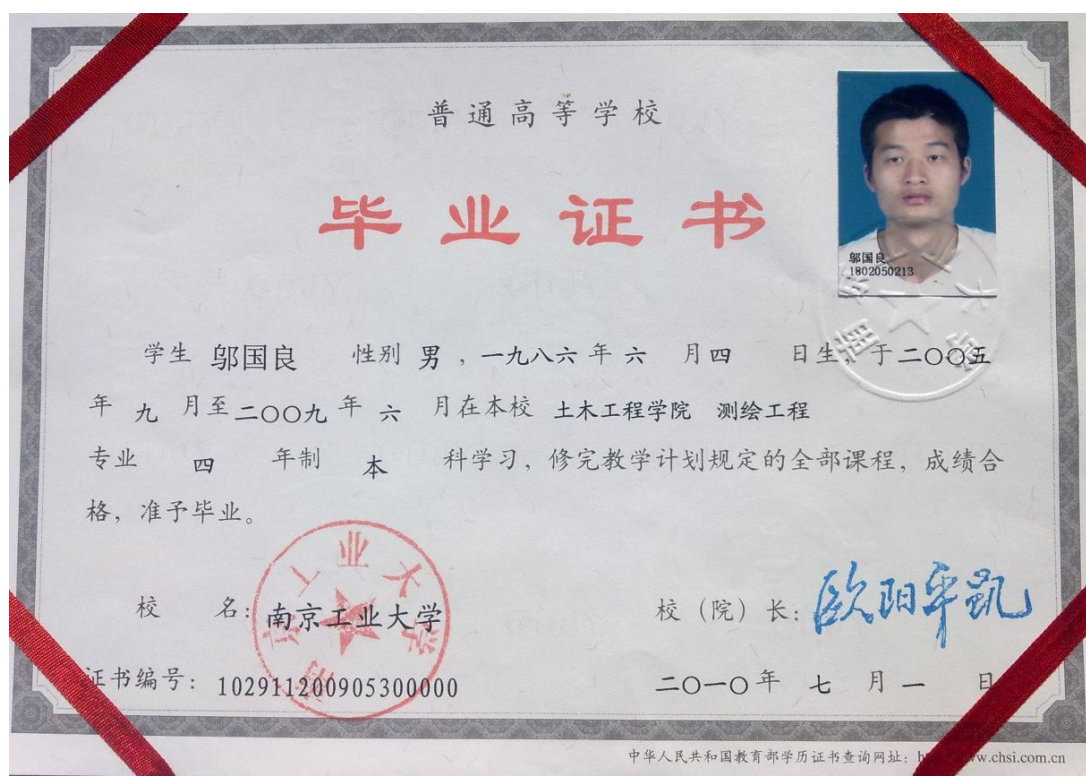 普通高等学校
毕业证书
邬国良
1802050213
学生 邬国良 性别 男 ，一九八六 年 六 月 四 日生，于二〇〇五
年 九 月至 二〇〇九 年 六 月在本校 土木工程学院 测绘工程
专业 四 年制 本 科学习，修完教学计划规定的全部课程，成绩合
格，准予毕业。
校 名：南京工业大学
南京工业大学
校（院）长：欧阳平凯
证书编号：102911200905300000
二〇一〇 年 七 月 一 日
中华人民共和国教育部学历证书查询网址：
w.chsi.com.cn